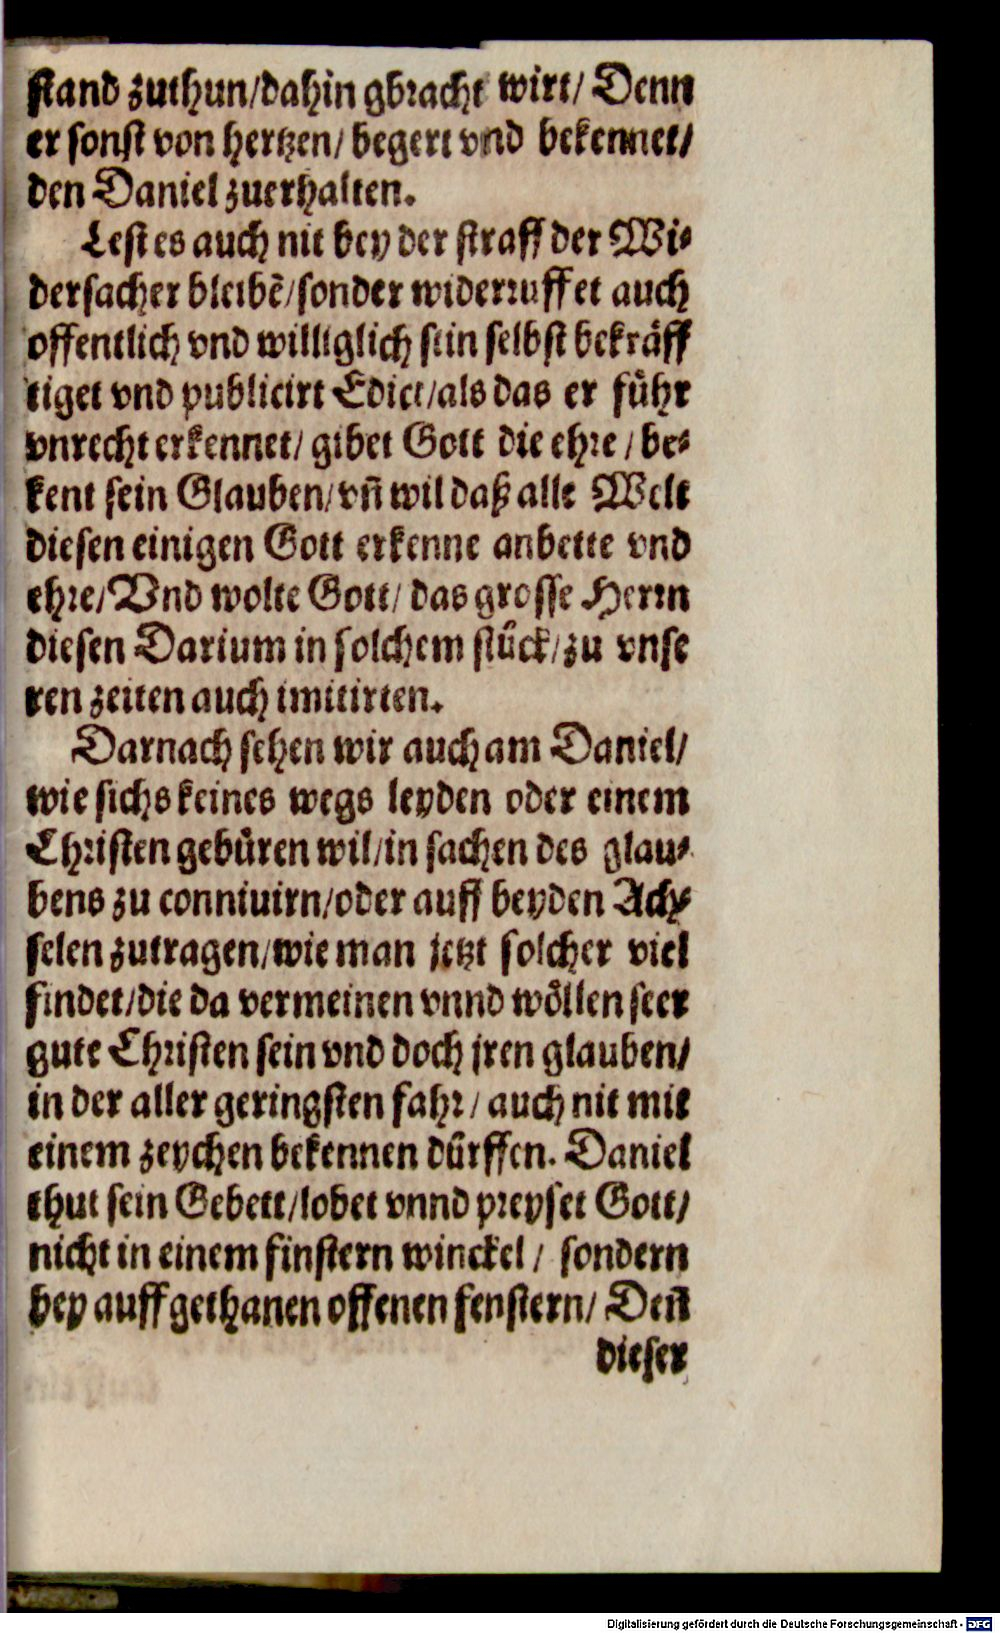 stand zuthun/dahin gbracht wirt/ Denn
er sonst von hertzen/ begert vnd bekennet/
den Daniel zuerhalten.
Lest es auch nit bey der straff der Wi-
dersacher bleibẽ/sonder widerruffet auch
offentlich vnd williglich sein selbst bekräff
tiget vnd publicirt Edict/als das er führ
vnrecht erkennet/ gibet Gott die ehre / be-
kent sein Glauben/vñ wil daß alle Welt
diesen einigen Gott erkenne anbette vnd
ehre/Vnd wolte Gott/ das grosse Herrn
diesen Darium in solchem stůck/zu vnse
ren zeiten auch imitirten.
Darnach sehen wir auch am Daniel/
wie sichs keines wegs leyden oder einem
Christen gebůren wil/in sachen des glau-
bens zu conniuirn/oder auff beyden Ach-
selen zutragen/wie man jetzt solcher viel
findet/die da vermeinen vnnd wöllen seer
gute Christen sein vnd doch jren glauben/
in der aller geringsten fahr/ auch nit mit
einem zeychen bekennen důrffen. Daniel
thut sein Gebett/lobet vnnd preyset Gott/
nicht in einem finstern winckel / sondern
bey auffgethanen offenen fenstern/ Deñ
dieser
Digitalisierung gefördert durch die Deutsche Forschungsgemeinschaft - DFG